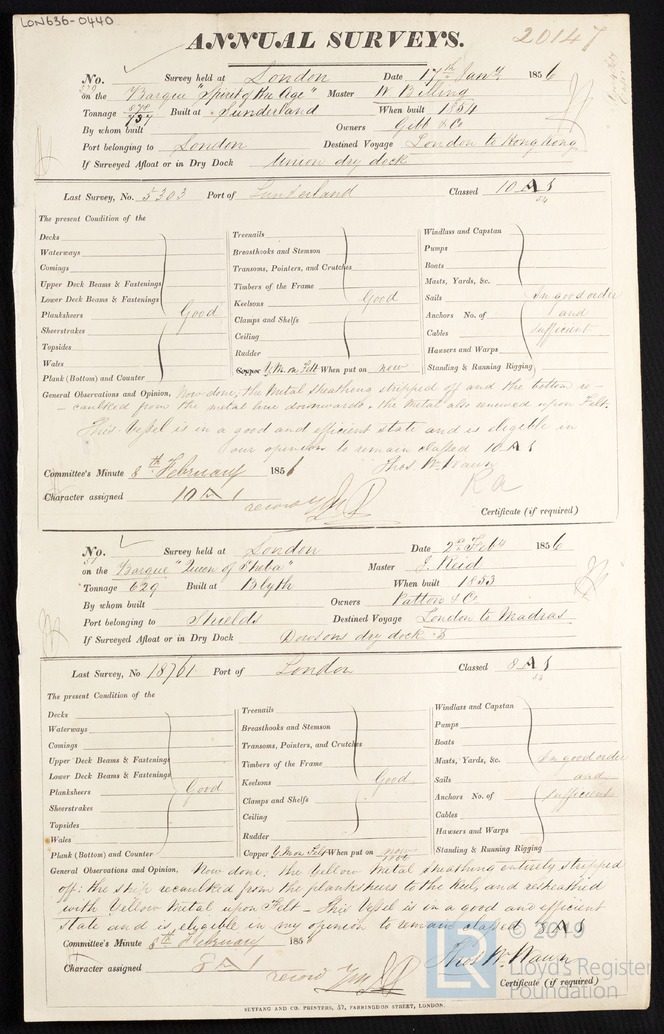 LON636-0440
ANNUAL SURVEYS.
20147
No. Survey held at London Date 17th Jany 1856
on the Barque "Spirit of the Age" Master W. Billing
Tonnage 578 737 Built at Sunderland When built 1854
By whom built Owners Gibb & Co
Port belonging to London Destined Voyage London to Hong Kong
If Surveyed Afloat or in Dry Dock Union dry dock
Last Survey, No. 5303 Port of Sunderland Classed 10 A 1
54
The present Condition of the
Decks
Waterways
Comings
Upper Deck Beams & Fastenings
Lower Deck Beams & Fastenings
Planksheers Good
Sheerstrakes
Topsides
Wales
Plank (Bottom) and Counter
Treenails
Breasthooks and Stemson
Transoms, Pointers, and Crutches
Timbers of the Frame
Keelsons Good
Clamps and Shelfs
Ceiling
Rudder
Copper Y.M. on Felt When put on now
Windlass and Capstan
Pumps
Boats
Masts, Yards, &c.
Sails In good order
Anchors No. of and
Cables sufficient
Hawsers and Warps
Standing & Running Rigging
General Observations and Opinion, Now done, the Metal Sheathing stripped off and the bottom re-
-caulked from the metal line downwards, the Metal also renewed upon Felt.
This Vessel is in a good and efficient state and is eligible in
our opinion to remain classed 10 A 1
Thos W. Wawn
Committee's Minute 8th February 185
Character assigned 10 A 1
record YM
Certificate (if required)
No. Survey held at London Date 2nd Feby 1856
on the Barque "Queen of Sheba" Master J. Reid
Tonnage 629 Built at Blyth When built 1853
By whom built Owners Patton & Co
Port belonging to Shields Destined Voyage London to Madras
If Surveyed Afloat or in Dry Dock Dowsons dry dock
Last Survey, No 18761 Port of London Classed 8 A 1
54
The present Condition of the
Decks
Waterways
Comings
Upper Deck Beams & Fastenings
Lower Deck Beams & Fastenings
Planksheers Good
Sheerstrakes
Topsides
Wales
Plank (Bottom) and Counter
Treenails
Breasthooks and Stemson
Transoms, Pointers, and Crutches
Timbers of the Frame
Keelsons Good
Clamps and Shelfs
Ceiling
Rudder
Copper Y.M on Felt When put on now
Windlass and Capstan
Pumps
Boats
Masts, Yards, &c. In good order
Sails and
Anchors No. of sufficient
Cables
Hawsers and Warps
Standing & Running Rigging
General Observations and Opinion, Now done; the Yellow Metal Sheathing entirely stripped
off: the ship recaulked from the planksheers to the keel, and resheathed
with Yellow Metal upon Felt – This Vessel is in a good and efficient
state and is eligible in my opinion to remain classed 8 A 1
Committee's Minute 8th February 185
Thos W. Wawn
Character assigned 8 A 1
record YM
Certificate (if required)
SEYFANG AND CO. PRINTERS, 57, FARRINGDON STREET, LONDON.
LR © 2019
Lloyd's Register
Foundation